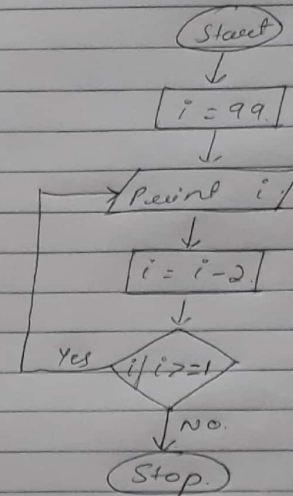 Start
i = 99.
Print i
i = i-2.
Yes
if i>=1
No.
Stop.